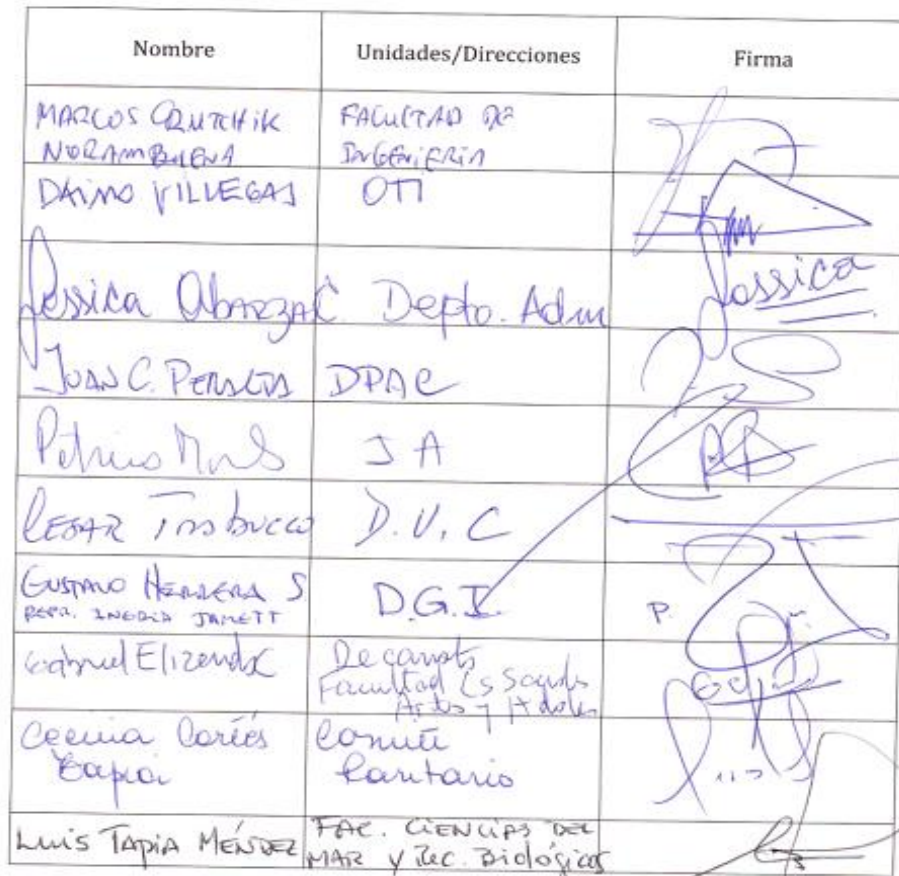 Nombre Unidades/Direcciones Firma
MARCOS CRUTCHIK FACULTAD DE
NORAMBUENA INGENIERIA
DAIMO VILLEGAS OTI
Jessica Abarza C. Depto. Adm Jessica
JUAN C. PERALTA DPAC
JA
CESAR Trabucco D.V.C
GUSTAVO HERRERA S D.G.I. P.
REPR. INGRID JAMETT
Gabriel Elizondo Decanato
Facultad Cs Sociales
Artes y
Cecilia Cortés Comité
Tapia Paritario
LUIS TAPIA MÉNDEZ FAC. CIENCIAS DEL
MAR Y REC. Biológicos